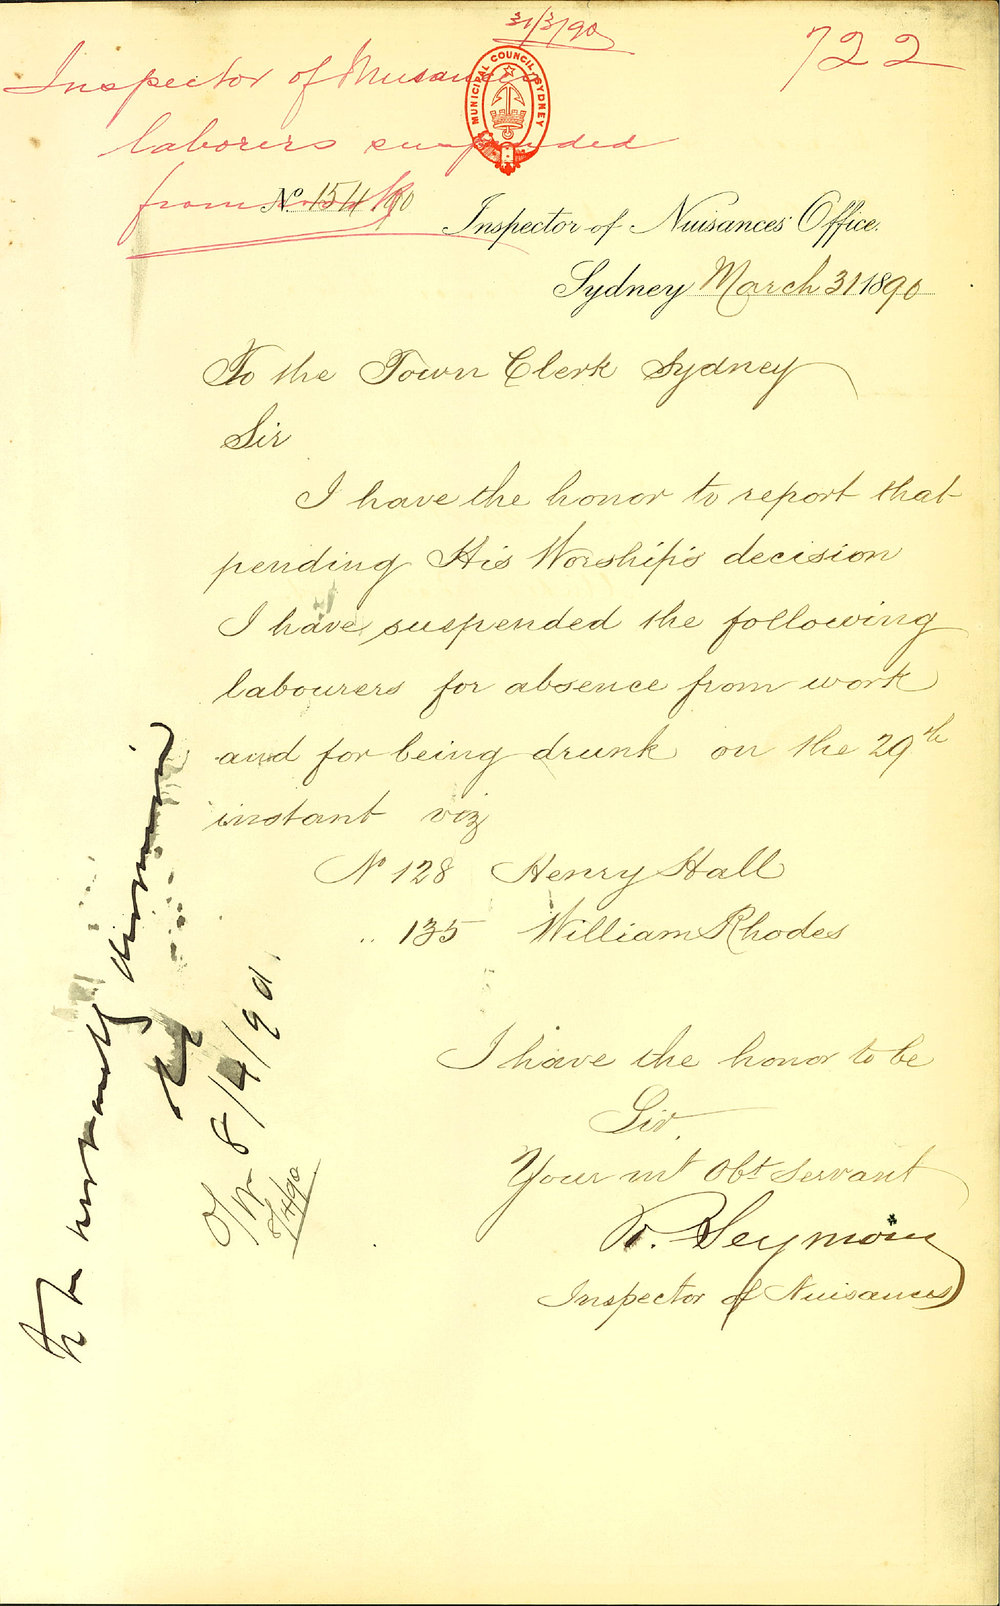 31/3/90
722
Inspector of Nuisances
laborers suspended
from work
MUNICIPAL COUNCIL SYDNEY
No. 154/90
Inspector of Nuisances Office.
Sydney March 31 1890
To the Town Clerk Sydney
Sir
I have the honor to report that
pending His Worship's decision
I have suspended the following
labourers for absence from work
and for being drunk on the 29th
instant viz
No 128 Henry Hall
.. 135 William Rhodes
I have the honor to be
Sir
Your mt Obt Servant
R. Seymour
Inspector of Nuisances
To be
8/4/90
8/4/90